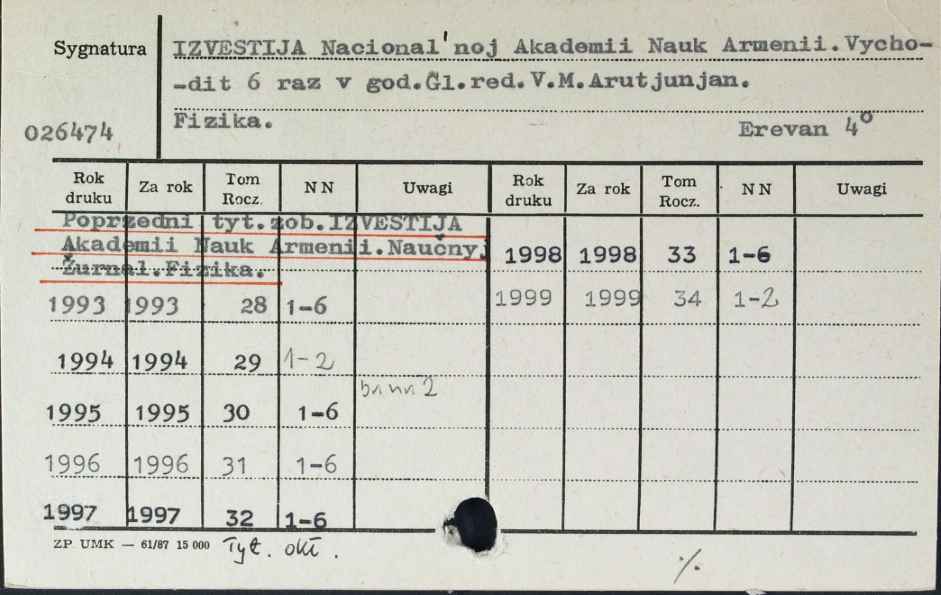 Sygnatura
IZVESTIJA Nacional'noj Akademii Nauk Armenii.Vycho-
-dit 6 raz v god.Gl.red.V.M.Arutjunjan.
Fizika.
026474
Erevan 4°
Rok druku Za rok Tom Rocz. NN Uwagi Rok druku Za rok Tom Rocz. NN Uwagi
Poprzedni tyt.zob.IZVESTIJA
Akademii Nauk Armenii.Naučnyj
Žurnal.Fizika.
1998 1998 33 1-6
1993 1993 28 1-6
1999 1999 34 1-2
1994 1994 29 1-2
br nr 2
1995 1995 30 1-6
1996 1996 31 1-6
1997 1997 32 1-6
ZP UMK — 61/87 15 000 Tyt. okł.
./.